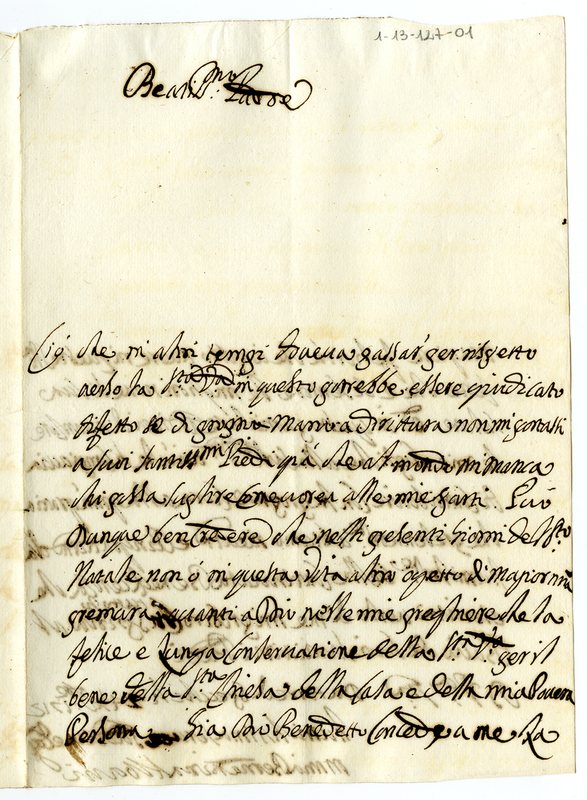 1-13-127-01
Beatiss.mo Padre
Ciò che in altri tempi doveva passar per rispetto
verso la S.tà V.ra in questo potrebbe essere giudicato
difetto se di proprio mano a dirittura non mi portassi
a suoi santiss.mi Piedi già che al mondo mi manca
chi possa suplire come vorei alle mie parti. Può
dunque ben credere che nelli presenti Giorni del S.to
Natale non ó in questa vita altro ogetto di magior mia
premura quanti a Dio nelle mie preghiere che la
felice e lunga Conservatione della S.tà V.ra per il
bene della S.ta Chiesa della Casa e della mia Povera
Persona Sia Dio Benedetto Concede a me la